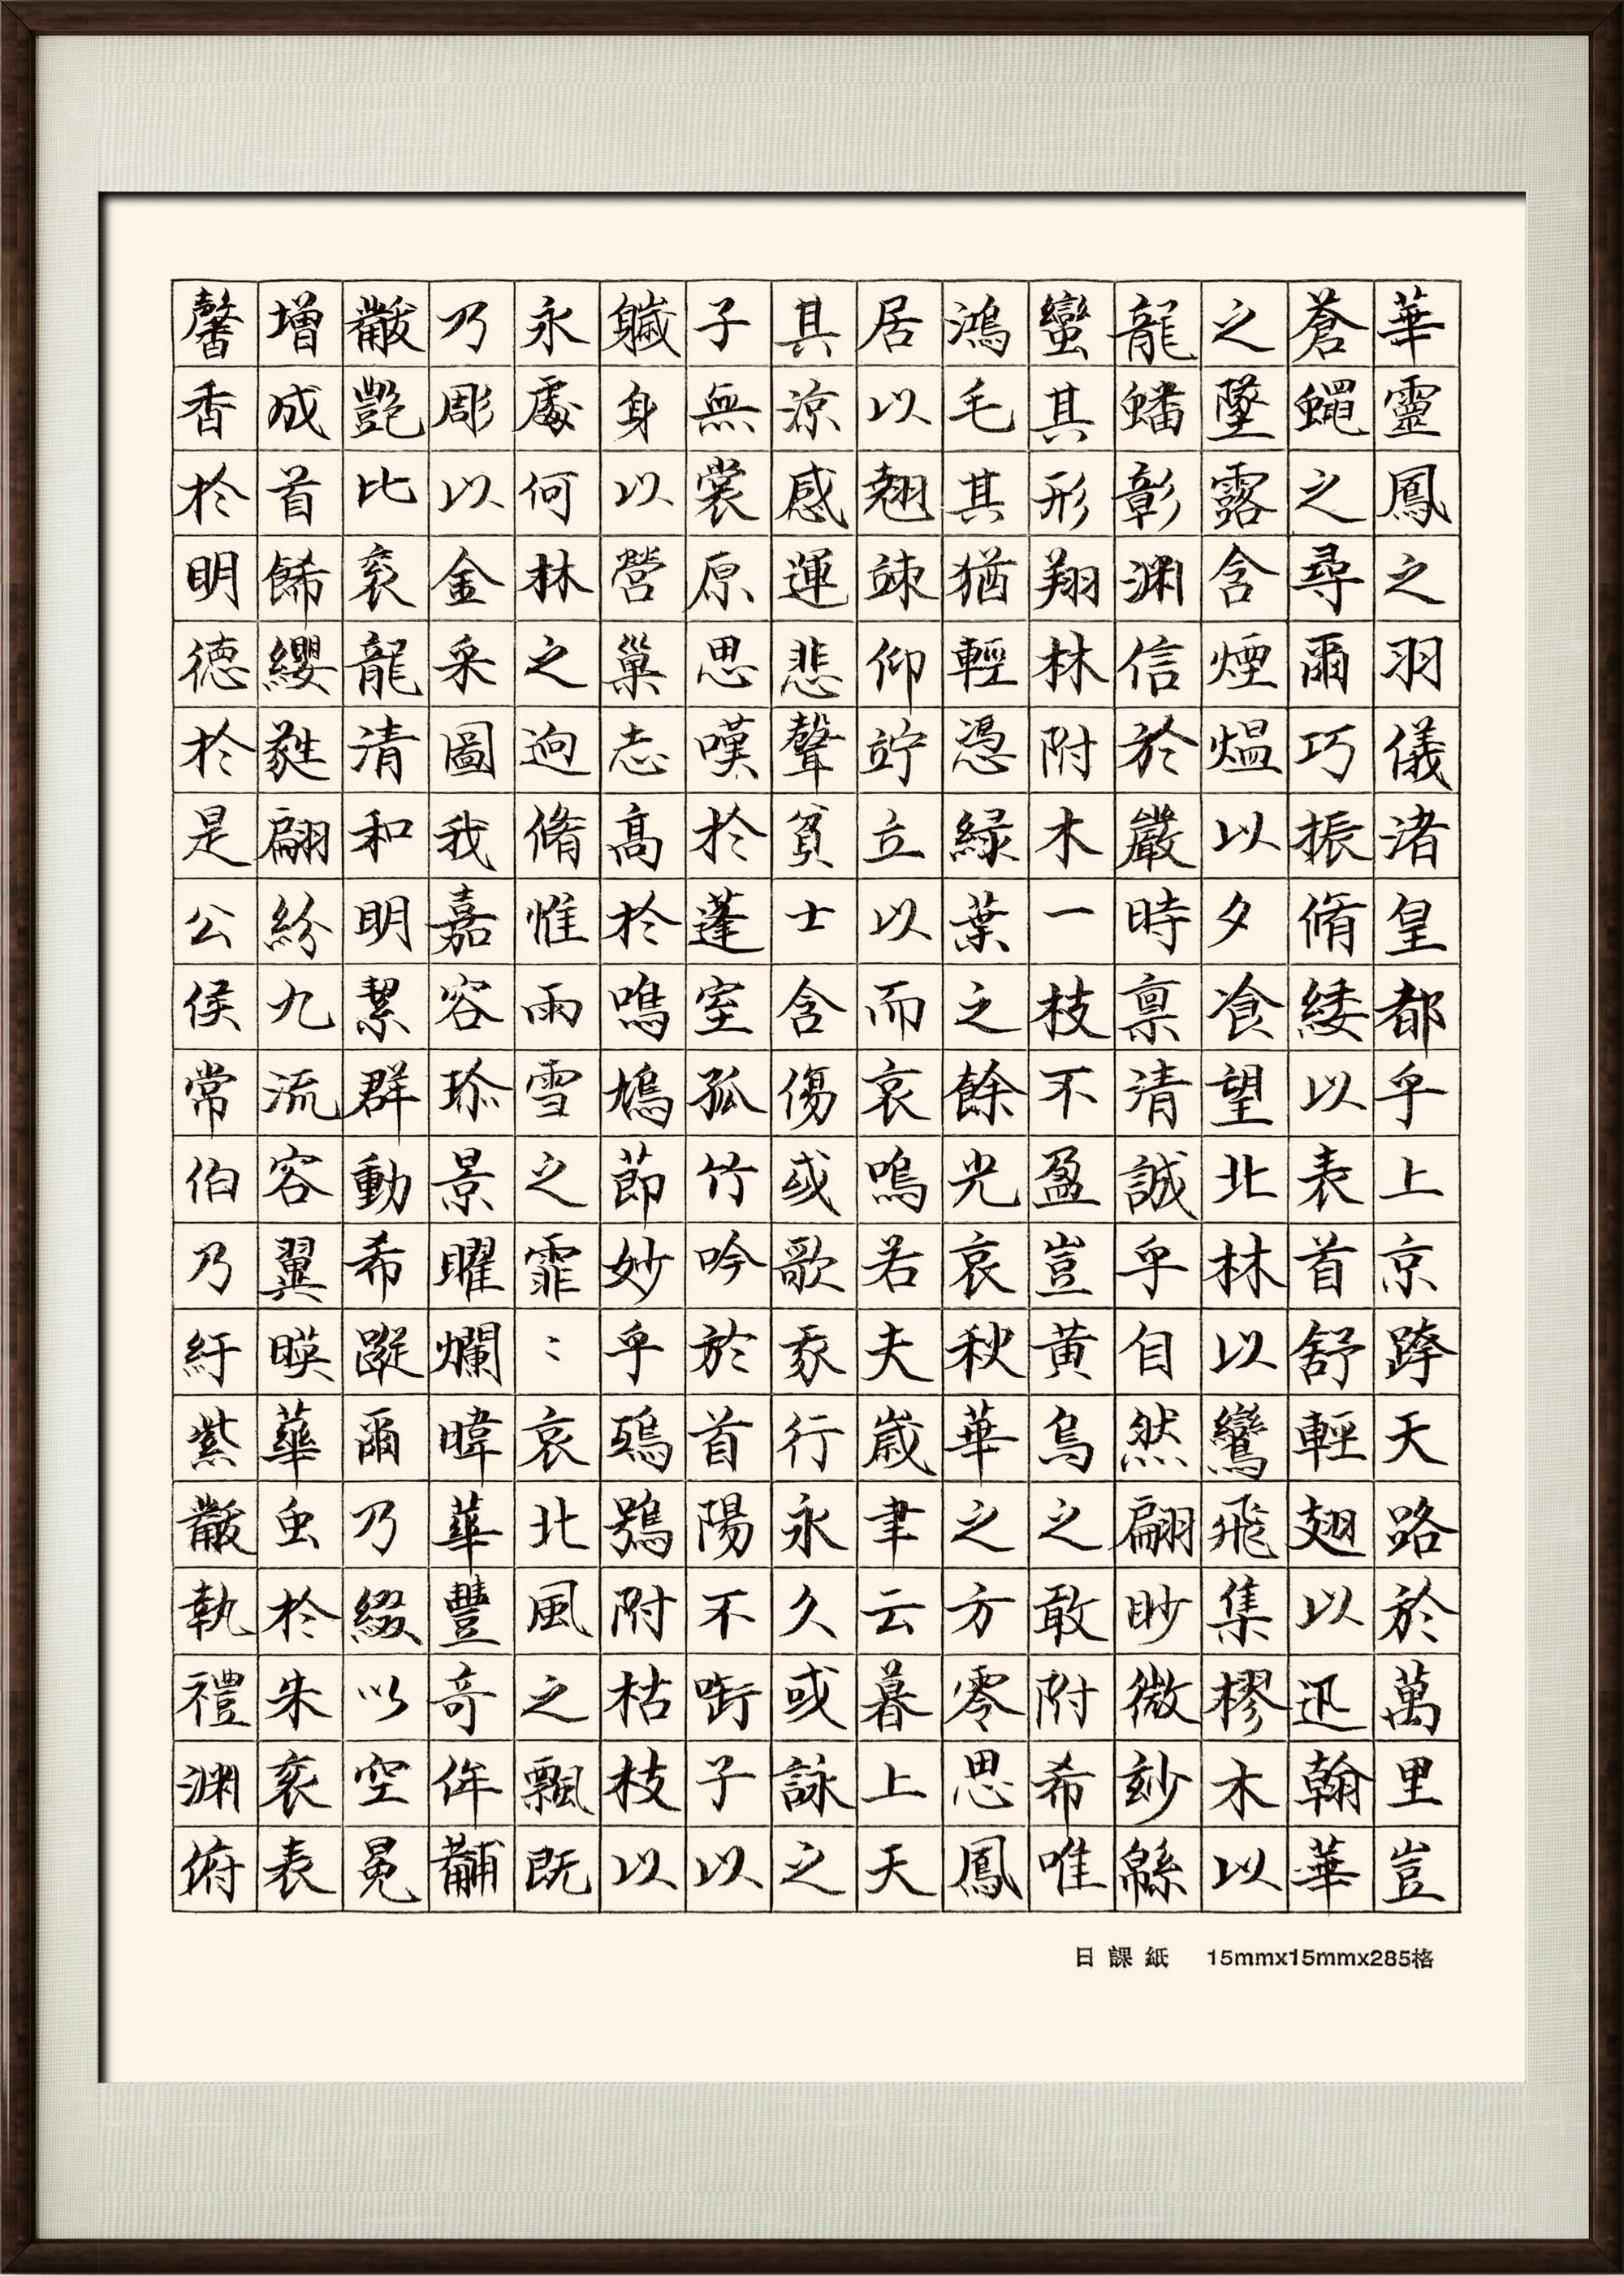 華靈鳳之羽儀渚皇都乎上京跨天路於萬里豈
蒼蠅之尋爾巧振脩緌以表首舒輕翅以迅翰華
之墜露含煙熅以夕飡望北林以鸞飛集樛木以
龍蟠彰渊信於嚴時禀清誠乎自然翩眇微玅緜
蠻其形翔林附木一枝不盈豈黄烏之敢附希唯
鴻毛其猶輕憑緑葉之餘光哀秋華之方零思鳳
居以翹竦仰竚立以而哀鳴若夫歳聿云暮上天
其涼感運悲聲貧士含傷或歌我行永久或詠之
子無裳原思嘆於蓬室孤竹吟於首陽不銜子以
軄身以營巢志高於鳴鳩節妙乎鵄鴞附枯枝以
永處何林之迥脩惟雨雪之霏〻哀北風之飄既
乃彫以金采圖我嘉容珎景曜爛暐華豐奇侔黼
黻艶比衮龍清和明絜群動希蹤爾乃綴以空冕
増成首飾纓蕤翩紛九流容翼暎華虫於朱衮表
馨香於明徳於是公侯常伯乃紆紫黻執禮渊俯
日課紙 15mmx15mmx285格